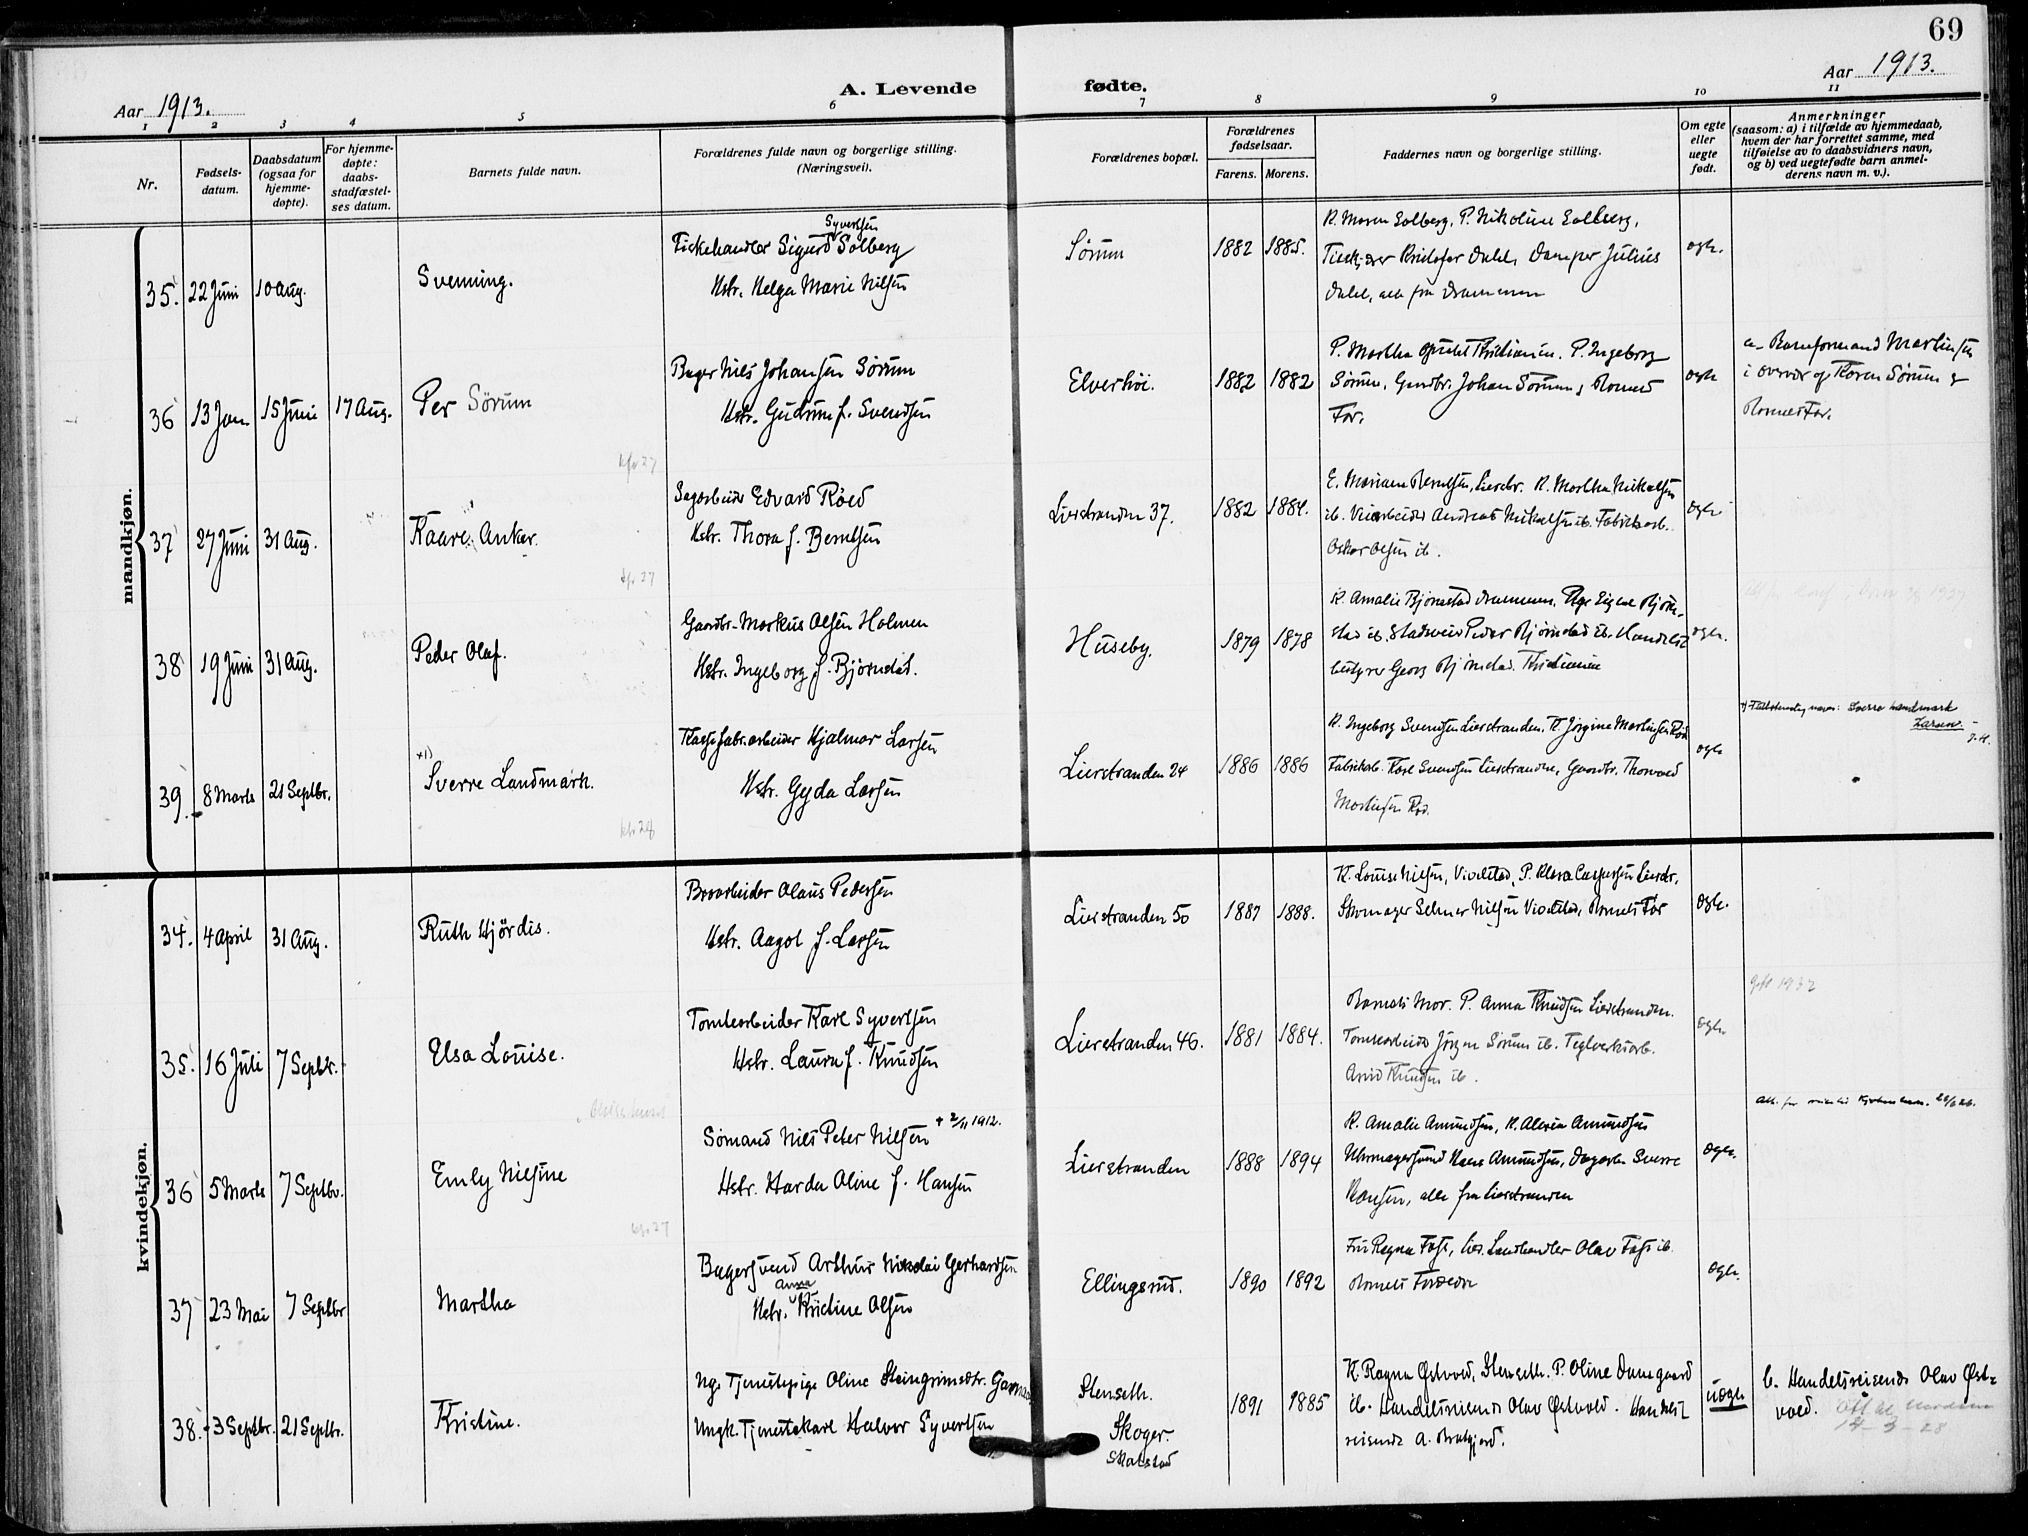 69
Aar 1913.
A. Levende fødte.
Aar 1913.
1 2 3 4 5 6 7 8 9 10 11
Nr.
Fødsels-
datum.
Daabsdatum
(ogsaa for
hjemme-
døpte).
For hjemme-
døpte:
daabs-
stadfæstel-
ses datum.
Barnets fulde navn.
Forældrenes fulde navn og borgerlige stilling.
(Næringsvei).
Forældrenes bopæl.
Forældrenes
fødselsaar.
Farens. Morens.
Faddernes navn og borgerlige stilling.
Om egte
eller
uegte
født.
Anmerkninger
(saasom: a) i tilfælde av hjemmedaab,
hvem der har forrettet samme, med
tilføielse av to daabsvidners navn,
og b) ved uegtefødte barn anmel-
derens navn m. v.).
mandkjøn.
35. 22 Juni 10 Aug.
Svenning.
Syvertsen
Fiskehandler Sigurd Solberg
Hstr. Helga Marie Nilsen
Sørum
1882 1885.
K. Maren Solberg, P. Nikoline Solberg,
Julius
Dahl, alle fra Drammen
egte.
36 13 Jan 15 Juni 17 Aug.
Per Sørum
kfr 27
Bager Nils Johansen Sørum
Hstr. Gudrun f. Svendsen
Elverhöi.
1882 1882
P. Martha Kristiania. P. Ingeborg
Sørum, Gaardbr. Johan Sørum, Barnets
Far.
egte
a. Martinsen
i Karen Sørum &
Barnets Far.
37 27 Juni 31 Aug.
Kaare Anker.
kfr 27
Sagarbeider Edvard Röed
Hstr. Thora f. Berntsen
Lierstranden 37.
1882 1884.
E. Mariane Berntsen, Lierstr. K. Martha Mikalsen
ib. Veiarbeider Andreas Mikalsen ib. Fabrikarb.
Oskar Olsen ib.
egte
38 19 Juni 31 Aug.
Peder Olaf.
Gaardbr. Markus Olsen Holmen
Hstr. Ingeborg f. Björndal.
Huseby.
1879 1878
K. Amalie Björnstad Drammen, Pige Signe Björn-
stad ib. Peder Björnstad ib. Handels-
bestyrer Georg Björnstad. Kristiania
egte.
1927
39. 8 Marts 21 Septbr.
x1)
Sverre Landmark.
kfr 28
Kassefabr.arbeider Hjalmar Larsen
Hstr. Gyda Larsen
Lierstranden 24
1886 1886
K. Ingeborg Svendsen Lierstranden, K. Jörgine Martinsen Röd
Fabrikarb. Karl Svendsen Lierstranden, Gaardbr. Thorvald
Martinsen Röd.
egte
x) Fuldstændig navn: Sverre Landmark
Larsen. –
kvindekjøn.
34. 4 April 31 Aug.
Ruth Hjördis.
Broarbeider Olaus Pedersen
Hstr. Aagot f. Larsen
Lierstranden 50
1887 1888.
K. Louise Nilsen, Vivelstad, P. Klara Caspersen Lierstr.
Skomager Selmer Nilsen Vivelstad, Barnets Far
egte.
35. 16 Juli 7 Septbr.
Elsa Louise.
Tomtearbeider Karl Syvertsen
Hstr. Laura f. Knudsen
Lierstranden 46.
1881 1884.
Barnets Mor. P. Anna Knudsen Lierstranden.
Tomtearbeider Jörgen Sörum ib. Teglverksarb.
Arvid Knudsen ib.
egte.
gift 1932
36 5 Marts 7 Septbr.
Emly Nilsine
kfr 27
Sömand Nils Peter Nilsen + 2/11 1912.
Hstr. Harda Oline f. Hansen
Lierstranden
1888 1894
K. Amalie Amundsen, K. Alexia Amundsen
Uhrmagersvend Hans Amundsen, Dagarb. Sverre
Hansen, alle fra Lierstranden
egte.
37 23 Mai 7 Septbr
Martha
Bagersvend Arthur Nikolai Gerhardsen
Anna
Hstr. Kristine Olsen
Ellingsrud.
1890 1892
Fru Ragna Foss, Lier. Landhandler Olav Foss ib.
Barnets Forældre
egte.
38. 3 Septbr. 21 Septbr.
Kristine.
Uge Tjenestepige Oline Steingrimsdtr.
Ungk. Tjenestekarl Halvor Syvertsen
Stenseth.
Skoger.
Skalstad
1891 1885
K. Ragna Østvold, Stenseth. P. Oline Damgaard
ib. Handelsreisende Olav Østvold. Handels-
reisende A.
uegte
b. Handelsreisende Olav Øst-
vold.
14-3-28